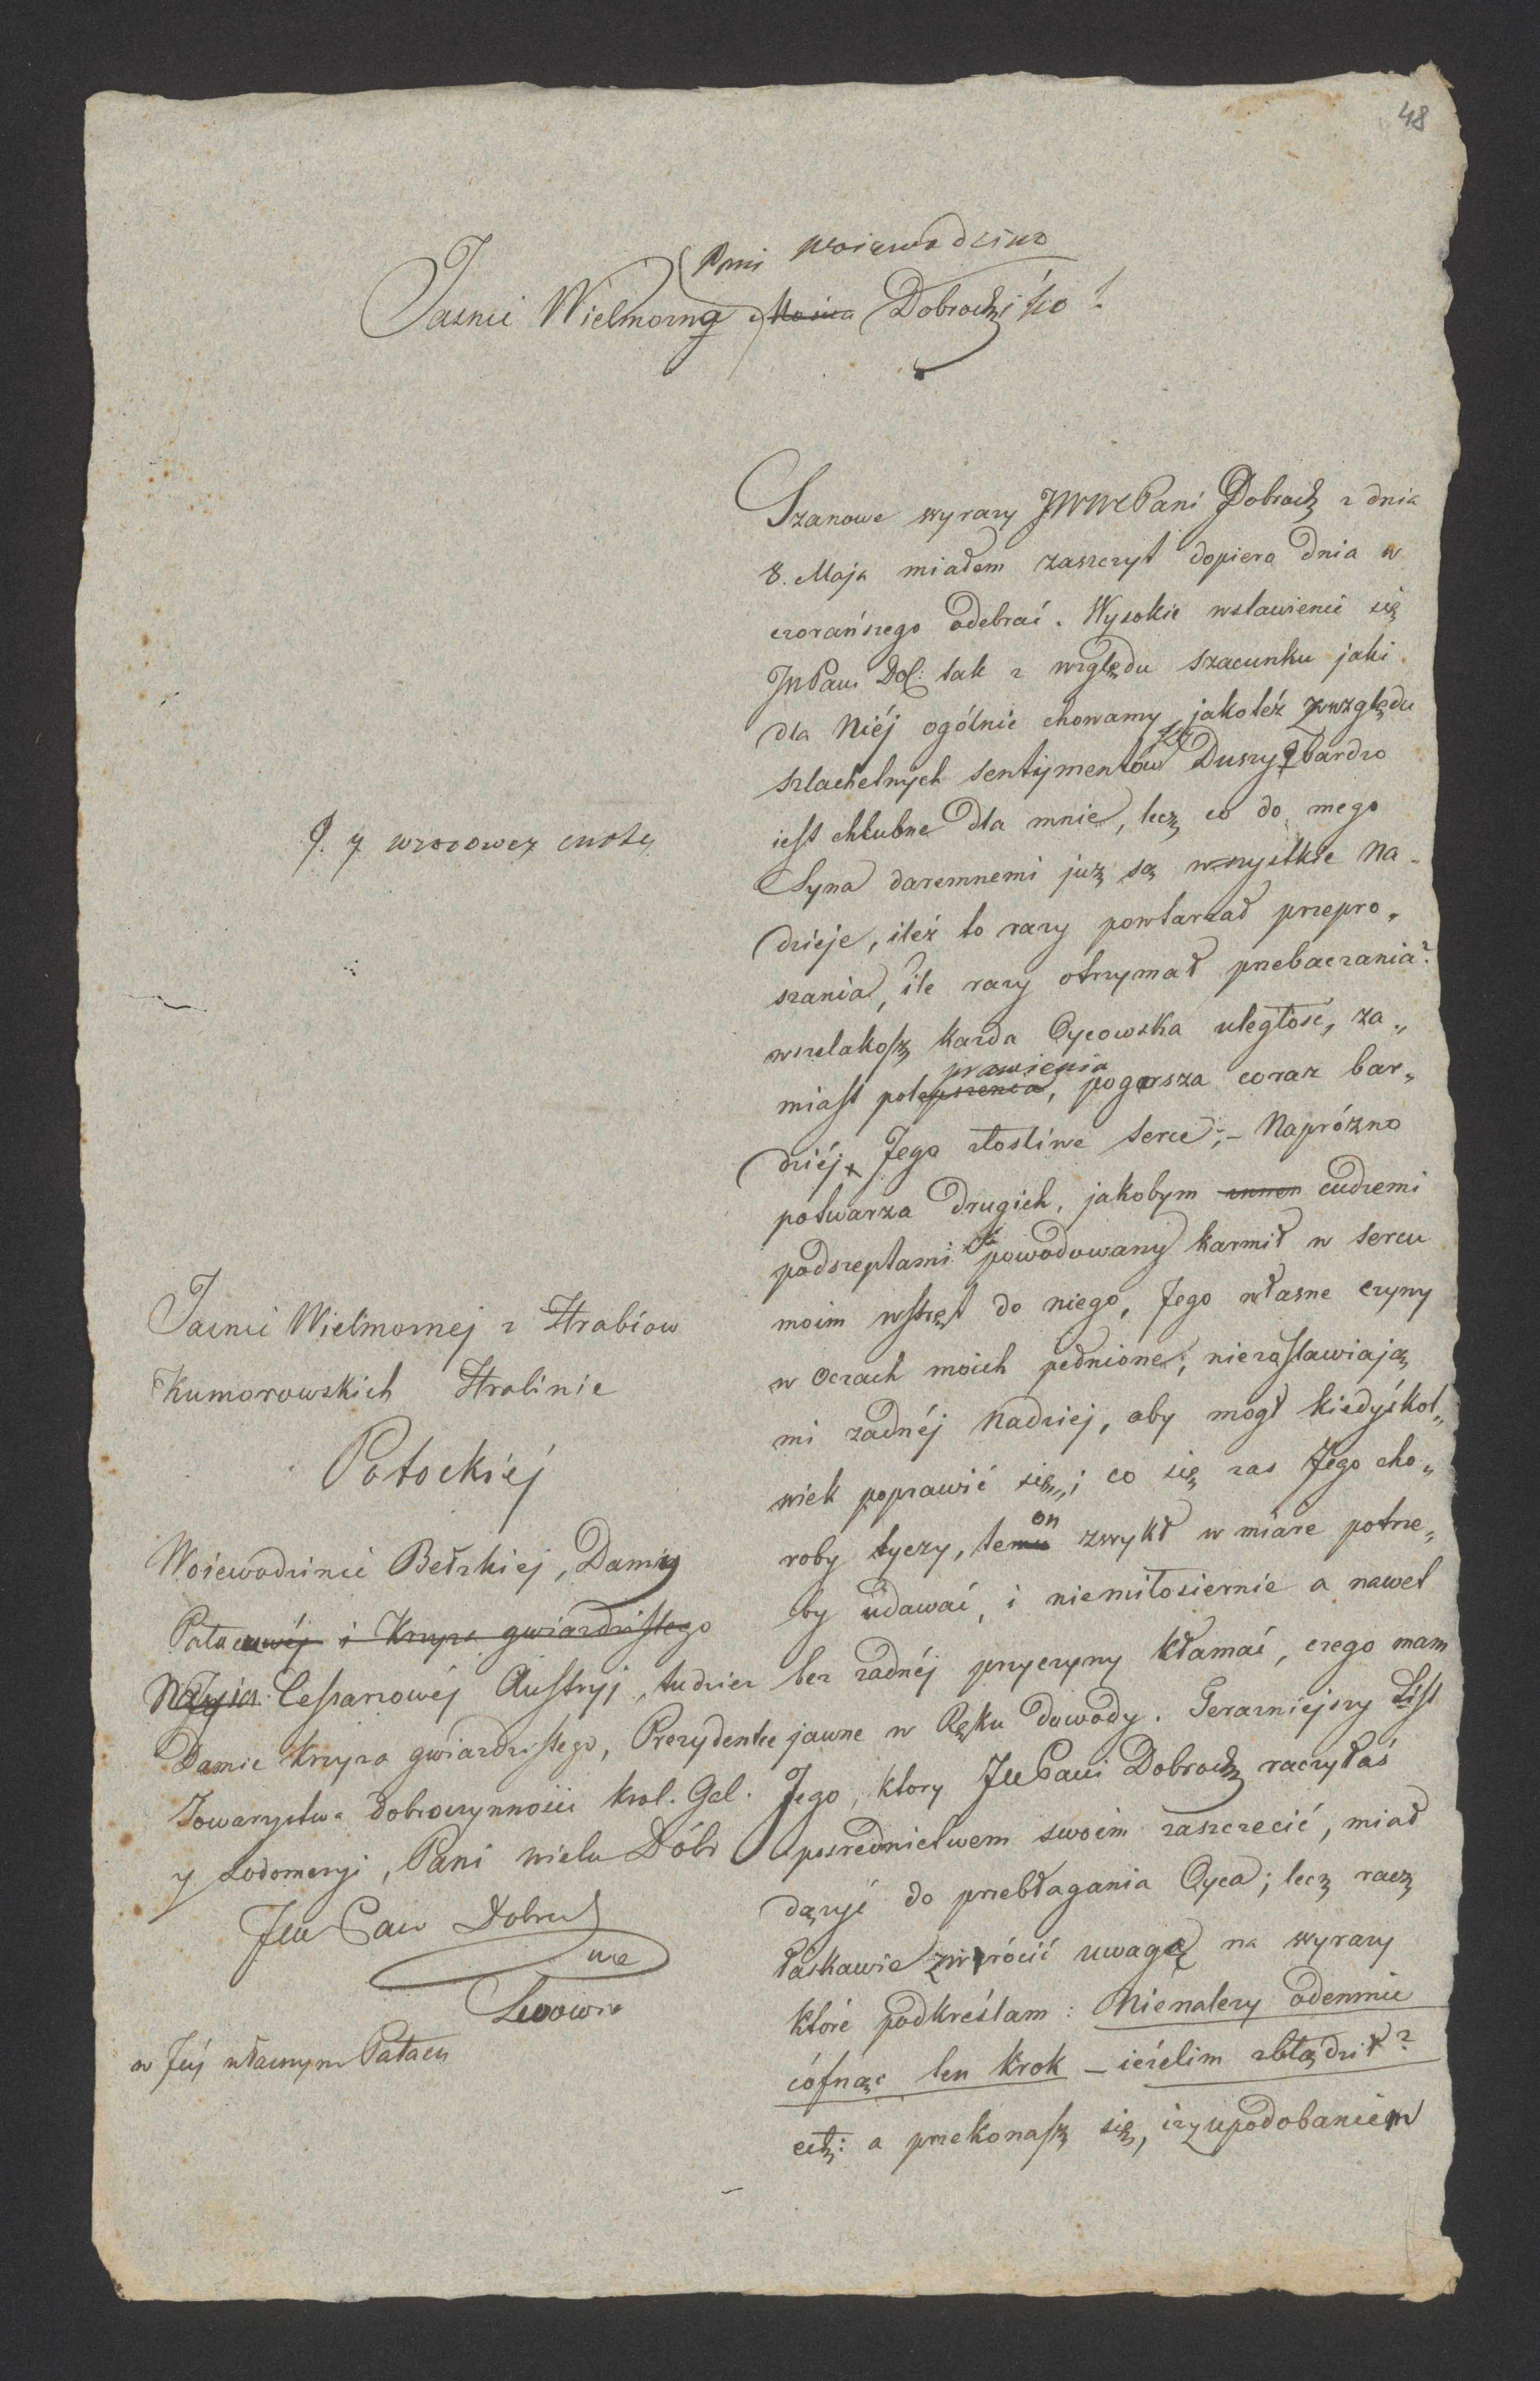 48
Pani Woiewodzino
Jasnie Wielmożną Mościa Dobrodziko!
Szanowe wyrazy JWWCPani Dobrodz z dnia
8. Maja miałem zaszczyt dopiero dnia w
czorańszego odebrać. Wysokie wstawienie się
JWPani Dol: tak z względu szacunku jaki
dla Niéj ogólnie chowamy, jakoteż z względu
szlachetnych sentymentów Duszy bardzo
iest chłubne dla mnie, lecz co do mego
Syna daremnemi już są wszystkie Na-
dzieje, ileż to razy powtarzał przepro„
szania, ile razy otrzymał przebaczania?
wszelakosz każda Oycowska uległosć, za„
prawienia
miast polepszenia, pogorsza coraz bar„
dziéj Jego złosliwe serce; – Napróżno
potwarza drugich, jakobym cudzemi
podszeptami powodowany karmił w sercu
moim wstręt do niego, Jego własne czyny
w Oczach moich pełnione; niezostawiają
mi żadnéj Nadziej, aby mogł kiedyśkol„
wiek poprawić się„; co się zas Jego cho„
on
roby tyczy, temu zwykł w miare potrze„
by udawać, i niemiłosiernie a nawet
bez żadnéj przyczyny kłamać, czego mam
jawne w Ręku dowody. Terazniejszy List
Jego, ktory JWPani Dobrodz raczyłaś
posrednictwem swoim zaszczecić, miał
dązyć do przebłagania Oyca; lecz racz
łaskawie zwrócić uwagę na wyrazy
które podkreślam: Nienależy odemnie
cófnąć ten krok – ieżelim zbłądził?
etz: a przekonasz się, iż upodobaniem
q. y wzorowey cnoty
Jasnie Wielmożnej z Hrabiow
Kumorowskich Hrabinie
Potockiéj
Woiewodzinie Bełzkiej, Damie
Pałacowéj i Krzyża gwiazdzistego
Nayja: Cessarzowéj Austryj, tudziez
Damie krzyża gwiazdzistego, Prezydentce
Towarzystwa dobroczynności krol. Gal.
y Lodomeryi, Pani wielu Dóbr
JW Pani Dobrodz
we
Lwowie
w Jéj własnym Pałacu